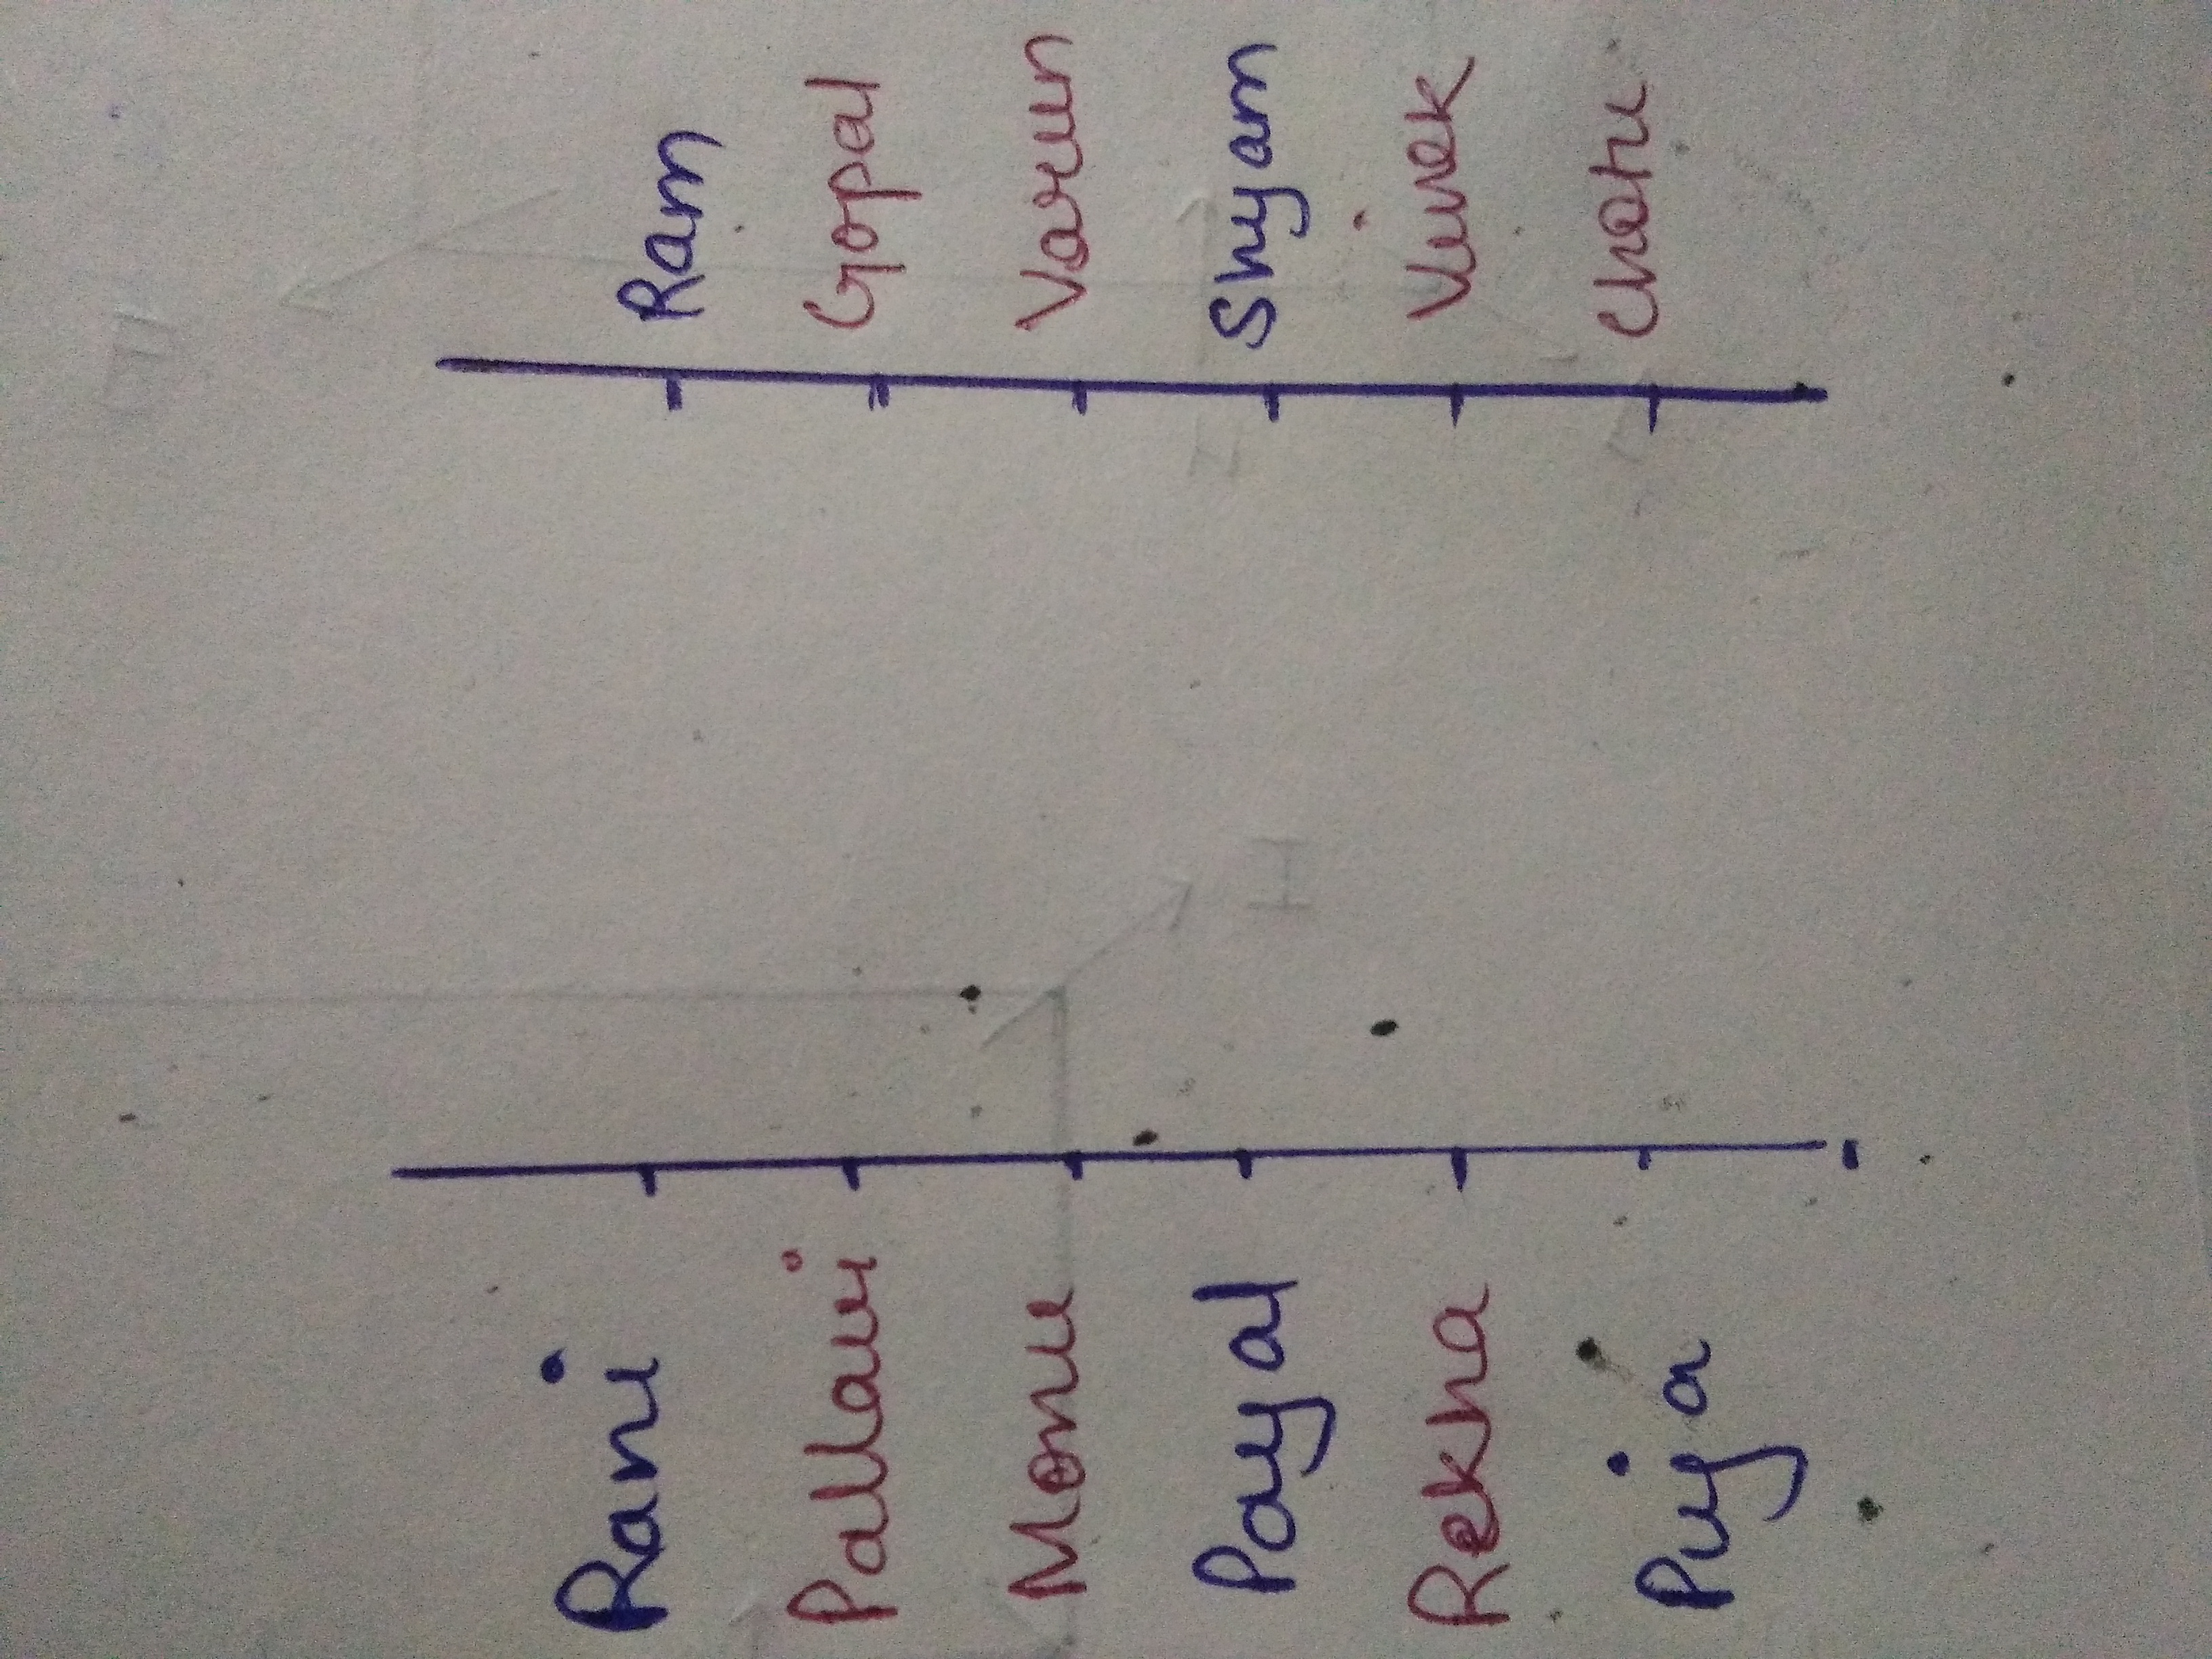 Rani
Pallavi
Monu
Payal
Rekha
Puja
Ram
Gopal
Varun
Shyam
Vivek
Chotu